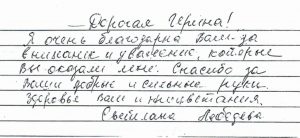 Дорогая Герина!
Я очень благодарна Вам за
внимание и уважение, которые
Вы оказали мне. Спасибо за
Ваши добрые и сильные руки.
Здоровья Вам и процветания.
Светлана Лебедева